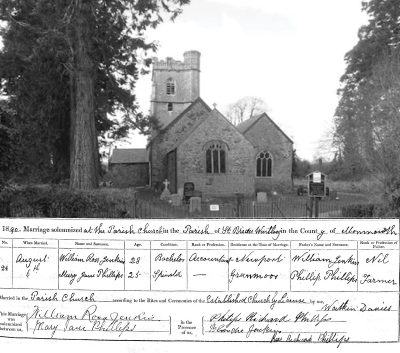 1890. Marriage solemnized at the Parish Church in the Parish of St Brides Wentloog in the County of Monmouth
No. When Married. Name and Surname. Age. Condition. Rank or Profession. Residence at the Time of Marriage. Father's Name and Surname. Rank or Profession of Father.
24 August 6th William Ross Jenkins 28 Bachelor Accountant Newport William Jenkins Nil
Mary Jane Phillips 25 Spinster — Granmoor Phillip Phillips Farmer
Married in the Parish Church according to the Rites and Ceremonies of the Established Church by License by me, Watkin Davies
This Marriage was solemnized between us, William Ross Jenkins Mary Jane Phillips in the Presence of us, Philip Richard Phillips